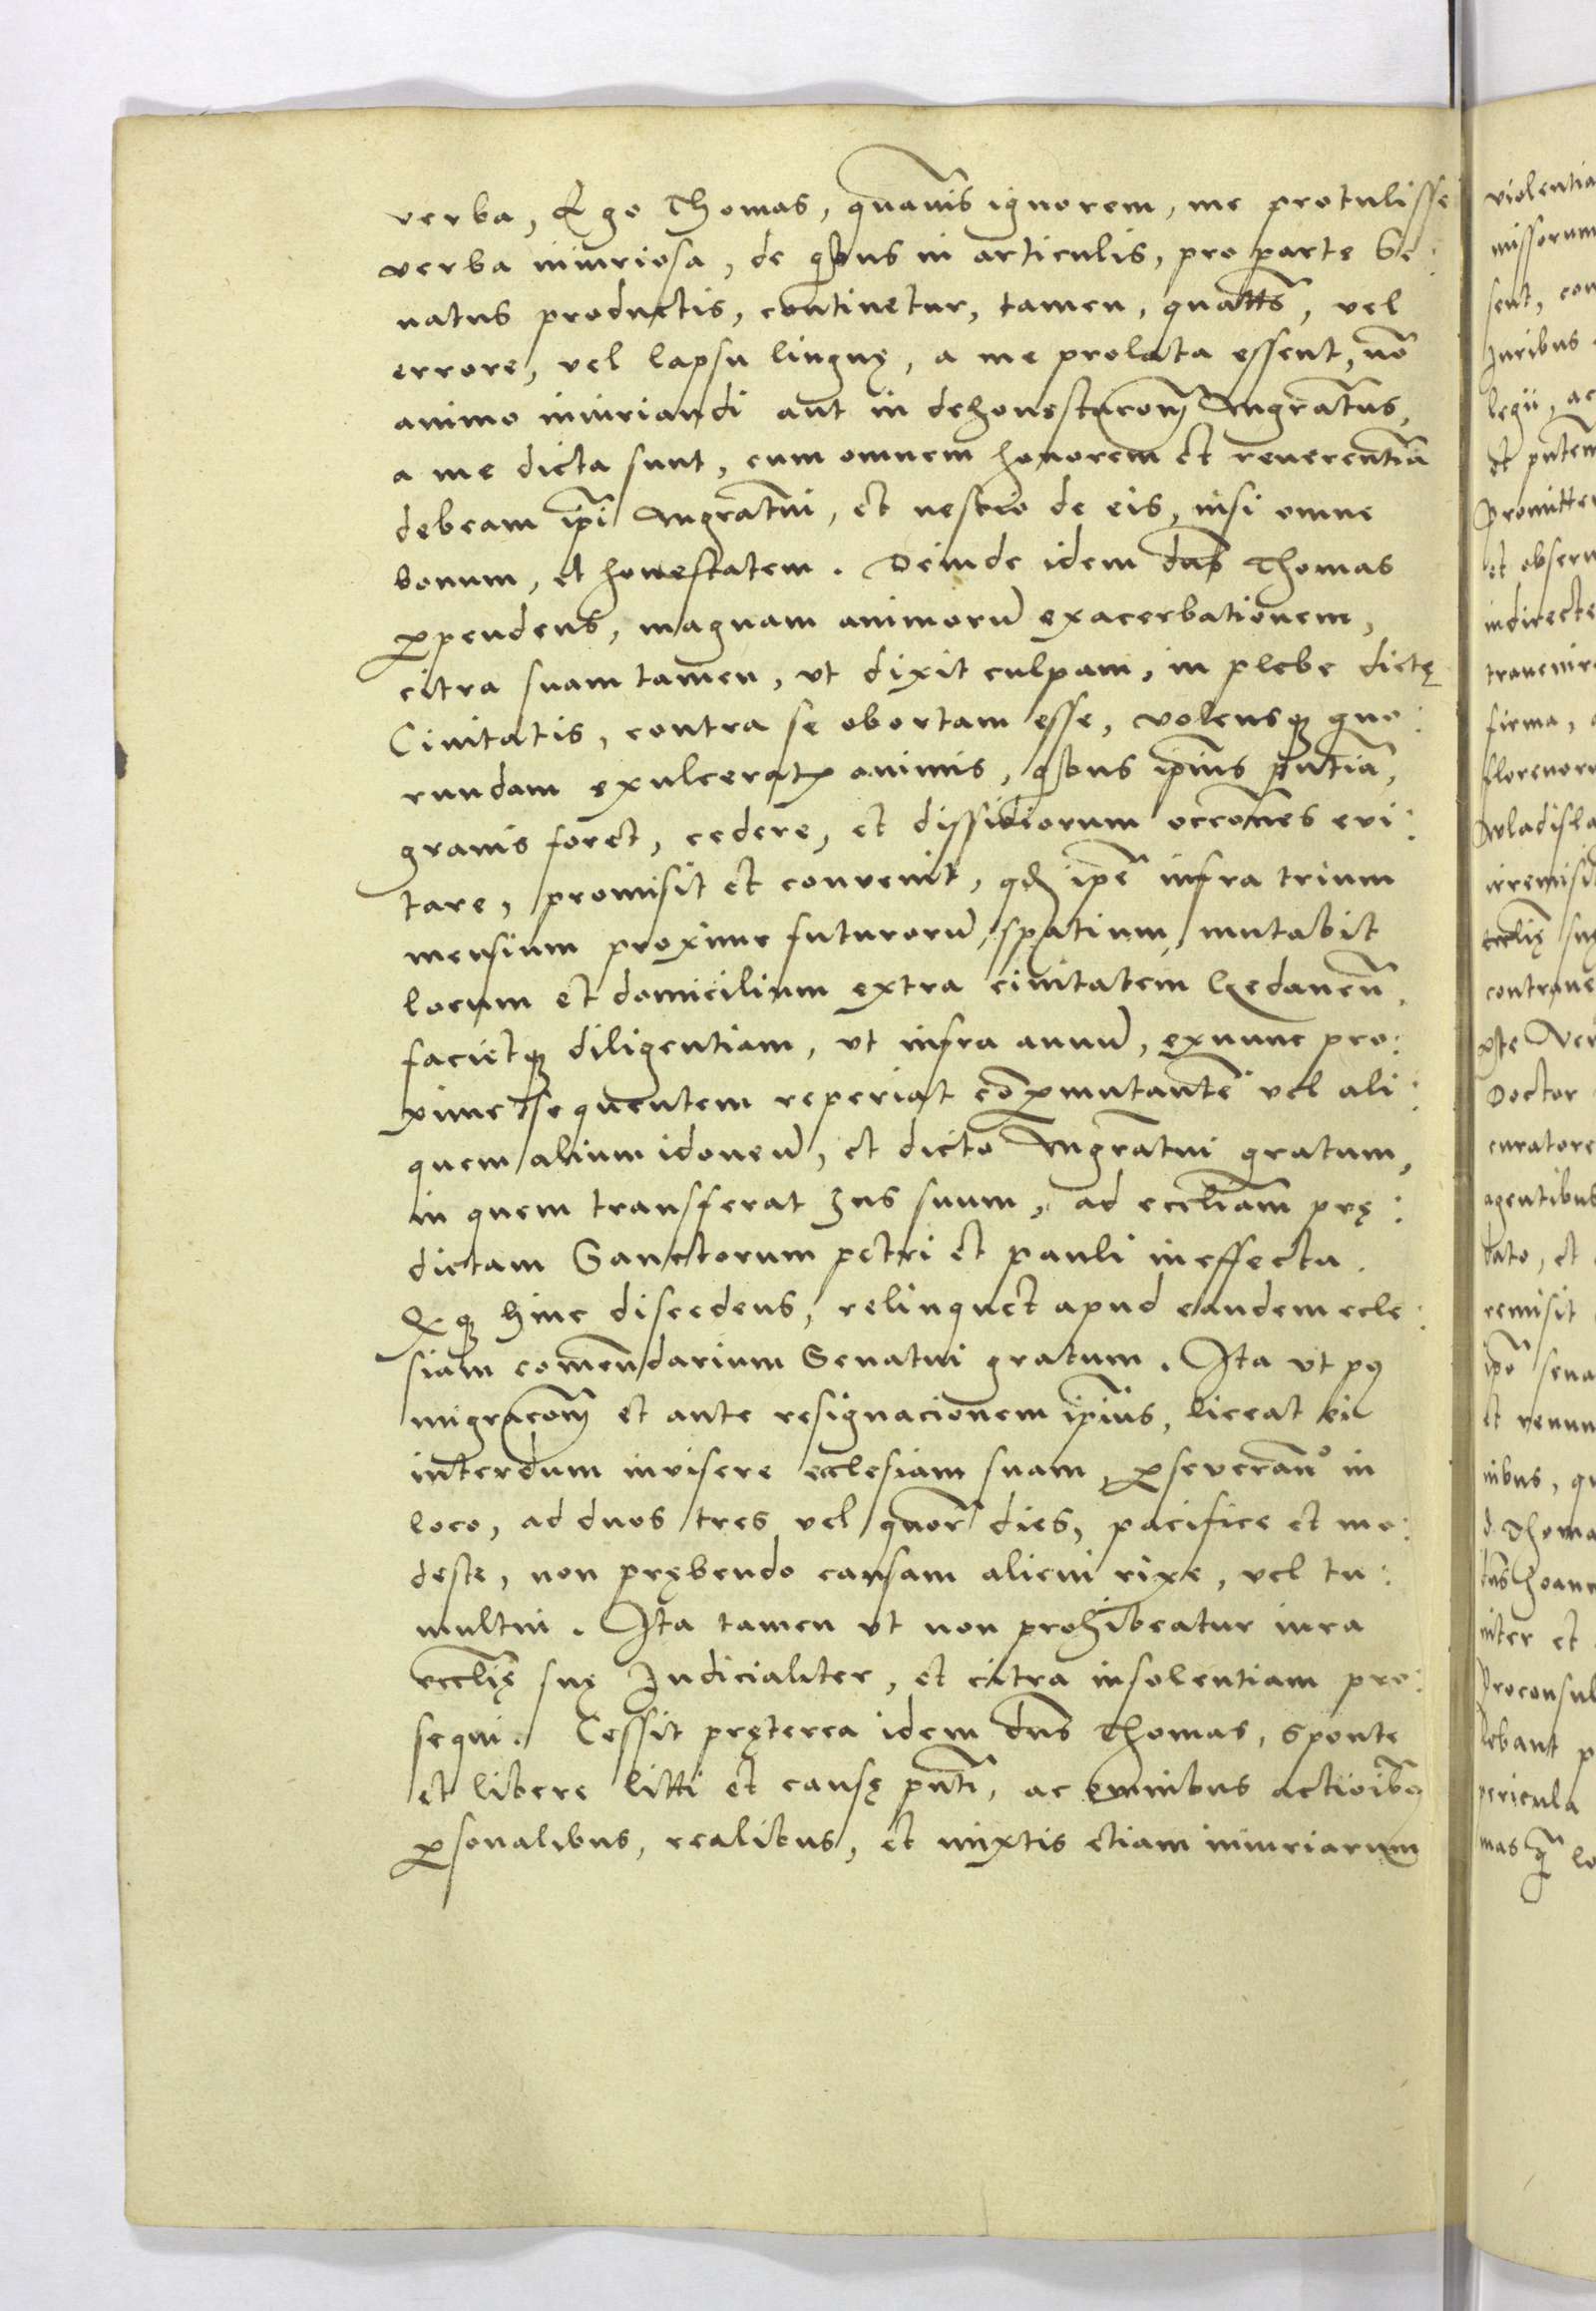 verba, Ego Thomas, quamuis ignorem, me protulisse
verba iniuriosa, de qbus in articulis, pro parte Se:
natus productis, continetur, tamen, quatts, vel
errore, vel lapsu linguę, a me prolata essent, nō
animo iniuriandi aut in dehonestacōem Mgratus,
a me dicta sunt, cum omnem honorem et reuerentiā
debeam ipi Mgratui, et nescio de eis, nisi omne
bonum, et honestatem. Deinde idem dns Thomas
ꝑpendens, magnam animorū exacerbationem,
citra suam tamen, vt dixit culpam, in plebe dictę
Ciuitatis, contra se obortam esse, volensqꝫ quo:
rundam exulceratꝭ animis, qbus ipius pntia,
grauis foret, cedere, et dissidiorum occōnes eui:
tare, promisit et conuenit, qd ipe infra trium
mensium proxime futurorū, spatium, mutabit
locum et domicilium extra ciuitatem Gedaneñ.
facietqꝫ diligentiam, vt infra annū, exnunc pro:
xime sequentem reperiat coꝑmutantē vel ali:
quem alium idoneū, et dicto Mgratui gratum,
in quem transferat Ius suum, ad eccliam prę:
dictam Sanctorum petri et pauli in effectu.
Eqꝫ hinc discedens, relinquet apud eandem eccle:
siam comendarium Senatui gratum. Ita vt pꝰ
migracōem et ante resignacionem ipius, liceat ei
interdum inuisere ecclesiam suam, ꝑseueranº in
loco, ad duos tres vel quor dies, pacifice et mo:
deste, non prębendo causam alicui rixe, vel tu:
multui. Ita tamen vt non prohibeatur iura
ecclię suę Iudicialiter, et citra insolentiam pro:
sequi. Cessit pręterea idem dns Thomas, sponte
et libere litti et causę pnti, ac omnibus actioibꝰ
ꝑsonalibus, realibus, et mixtis etiam iniuriarum
violentia
missorum
sent, con
Iuribus
legii, ac
et pntem
promitte
et obseru
indirecte
trauenire
firma,
florenor
Wladisla
irremisi
ecclię su
contraue
Doctor
curatore
agentibus
dato, et
remisit
ipō sena
et renun
nibus, qu
d. Thoma
niter et
Proconsul
pericula